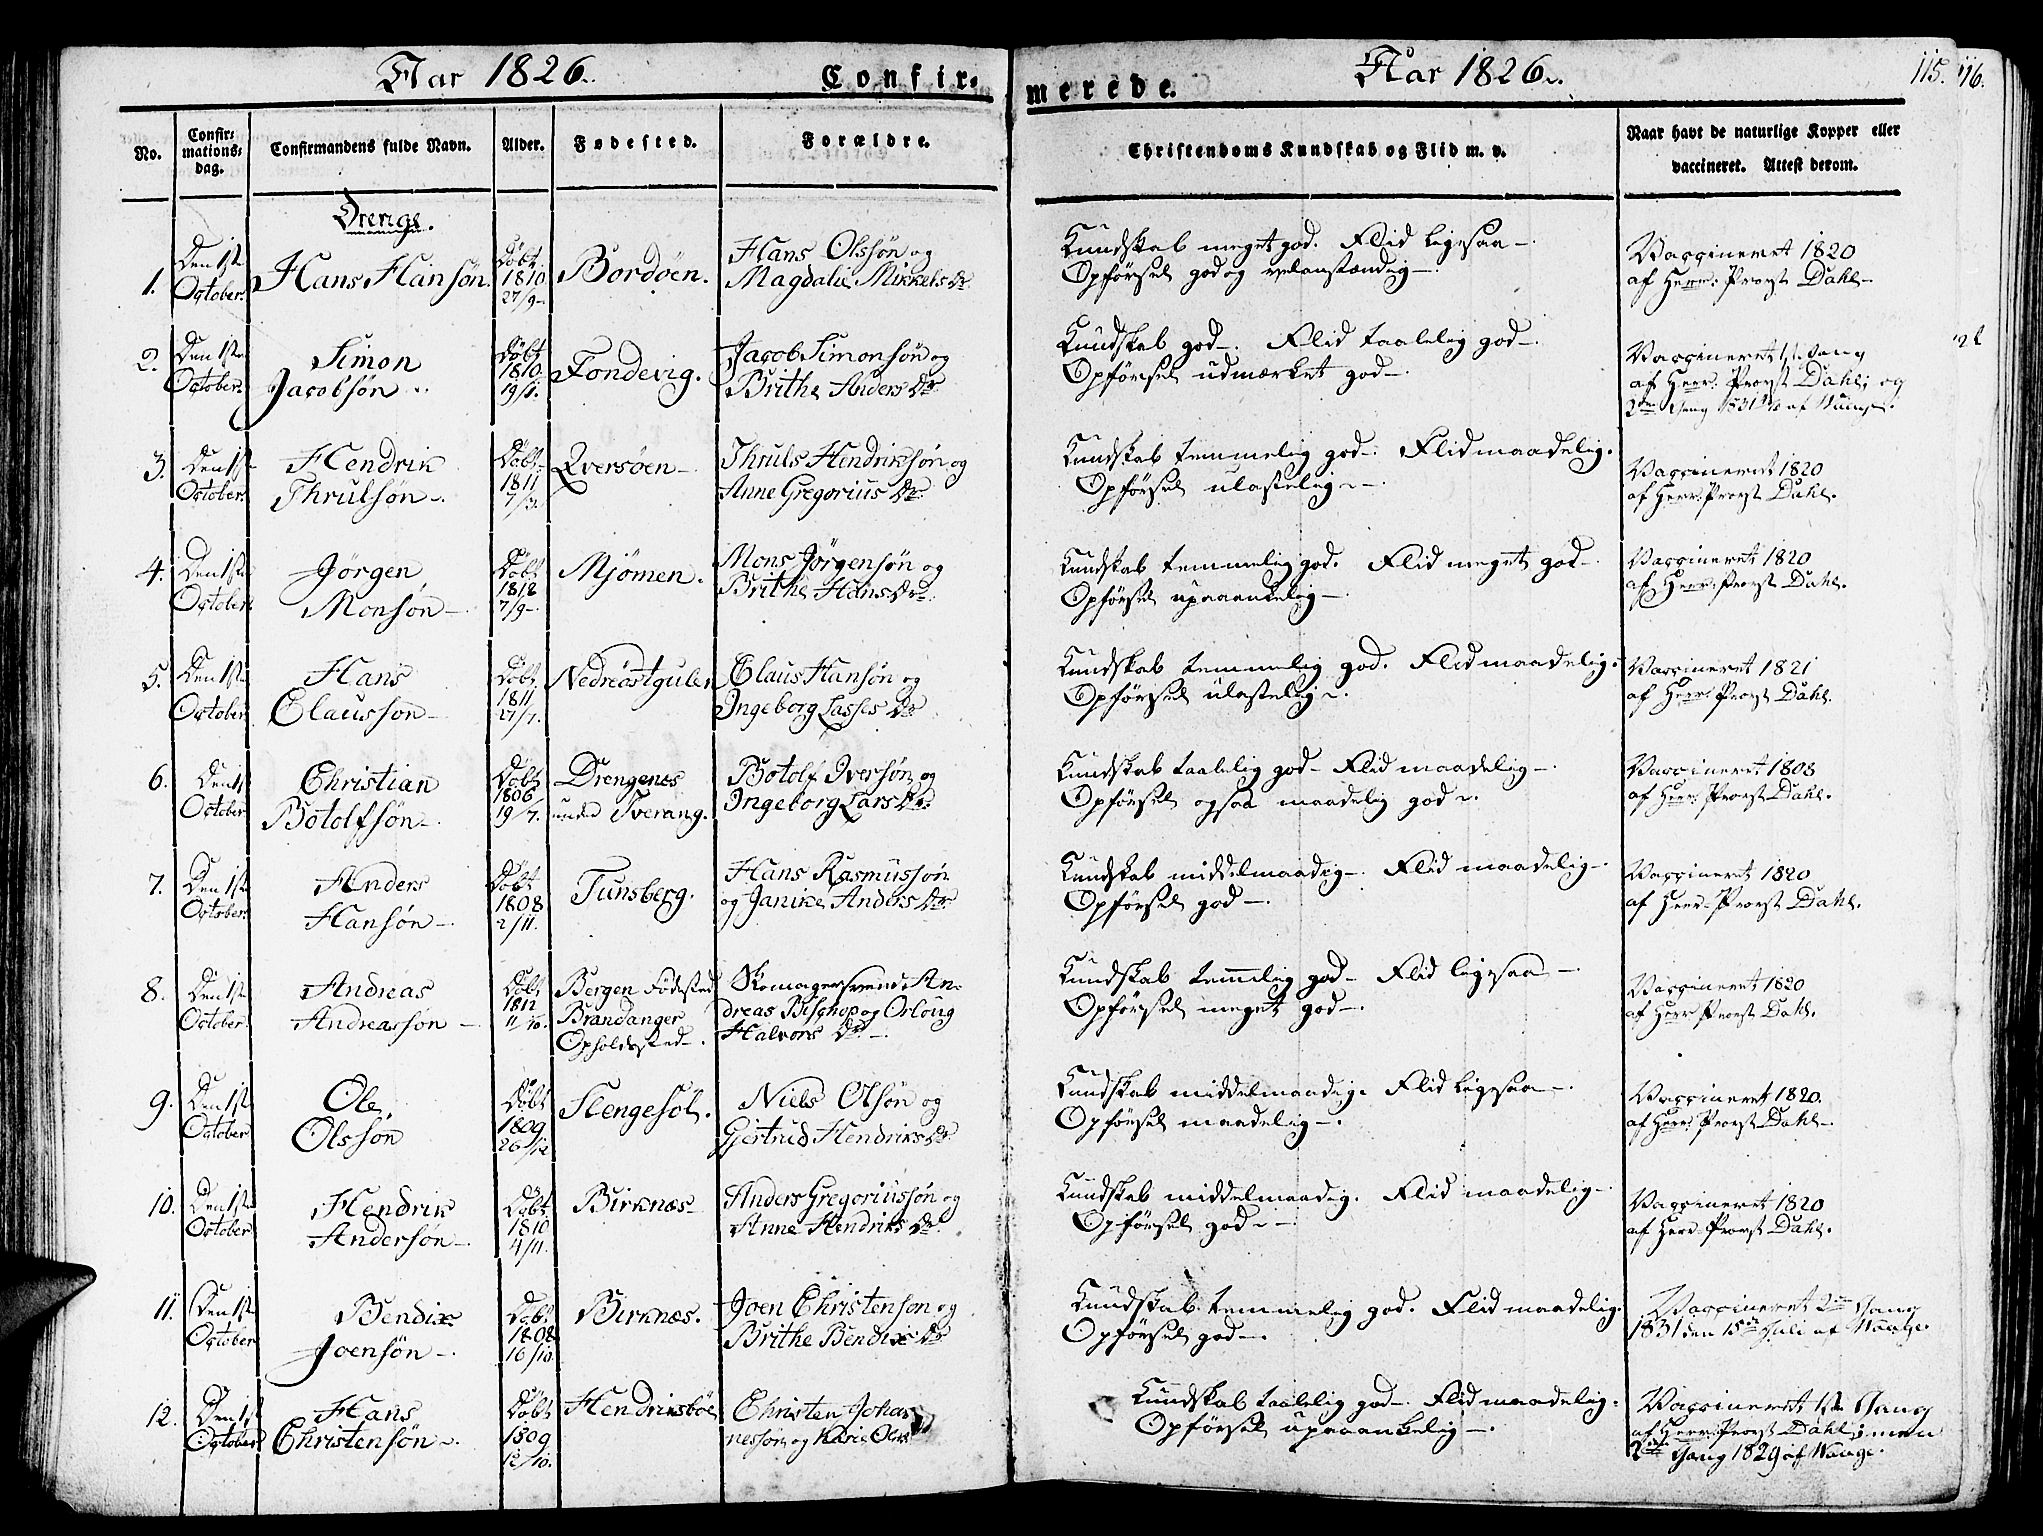 Aar 1826.
Confir-
merede.
Aar 1826.
115. 116.
No.
Confir-
mations-
dag.
Confirmandens fulde Navn.
Alder.
Fødested.
Forældre.
Christendoms Kundskab og Flid m. v.
Naar havt de naturlige Kopper eller
vaccineret. Attest derom.
Drenge.
1.
Den 1ste
October.
Hans Hansøn.
Døbt
1810
27/9
Bordøen.
Hans Olssøn og
Magdalie Mikkels Dr.
Kundskab meget god. Flid ligesaa.
Opførsel god og velanstændig.
Vaccineret 1820
af Herr: Provst Dahl.
2.
Den 1ste
October.
Simon
Jacobsøn
Døbt
1810
19/1.
Fondevig.
Jacob Simonsøn og
Brithe Anders Dr
Kundskab god. Flid taalelig god.
Opførsel udmærket god.
Vaccineret 1st. Gang
af Herr: Provst Dahl; og
2den Gang 1831 af Waage.
3.
Den 1ste
October.
Hendrik
Thrulsøn
Døbt
1811
7/3.
Qversøen
Thruls Hindriksøn og
Anne Gregorius Dr.
Kundskab temmelig god. Flid maadelig.
Opførsel ulastelig.
Vaccineret 1820
af Herr: Provst Dahl.
4.
Den 1ste
October.
Jørgen
Monsøn
Døbt
1812
7/9
Mjømen.
Mons Jørgensøn og
Brithe Hans Dr.
Kundskab temmelig god. Flid meget god.
Opførsel upaaankelig.
Vaccineret 1820
af Herr: Provst Dahl.
5.
Den 1ste
October
Hans
Claussøn
Døbt
1811
27/7.
Nedreøstgulen
Claus Hansøn og
Ingeborg Lasses Dr
Kundskab temmelig god. Flid maadelig.
Opførsel ulastelig.
Vaccineret 1821
af Herr: Provst Dahl.
6.
Den 1st
October
Christian
Botolfsøn
Døbt
1806
19/7.
Drengenes
under Tverang.
Botolf Iversøn og
Ingeborg Lars Dr.
Kundskab taalelig god. Flid maadelig.
Opførsel ogsaa maadelig god.
Vaccineret 1808
af Herr: Provst Dahl.
7.
Den 1ste
October.
Anders
Hansøn
Døbt
1808
2/11.
Tunsberg.
Hans Rasmussøn
og Janike Anders Dr.
Kundskab middelmaadig. Flid maadelig.
Opførsel god.
Vaccineret 1820
af Herr: Provst Dahl.
8.
Den 1ste
October.
Andreas
Andreassøn
Døbt
1812
11/10.
Bergen Fødested
Brandanger
Opholdssted.
Skomagersvend An-
dreas Bischop og Orloug
Halvors Dr.
Kundskab temmlig god. Flid ligesaa.
Opførsel meget god.
Vaccineret 1820
af Herr: Provst Dahl.
9.
Den 1st
October
Ole
Olssøn
Døbt
1809
26/12
Stengesol.
Niels Olsøn og
Gjertrud Hendriks Dr
Kundskab middelmaadig. Flid ligesaa.
Opførsel maadelig.
Vaccineret 1820.
af Herr: Provst Dahl.
10.
Den 1ste
October
Hendrik
Andersøn
Døbt
1810
4/11.
Birknæs
Anders Gregoriussøn og
Anne Hendriks Dr.
Kundskab middelmaadig. Flid maadelig.
Opførsel god.
Vaccineret 1820
af Herr: Provst Dahl.
11.
Den 1ste
October
Bendix
Joensøn
Døbt
1808
16/10.
Birknæs.
Joen Christensøn og
Brithe Bendix Dr
Kundskab temmelig god. Flid maadelig.
Opførsel god.
Vaccineret 2den Gang
1831 den 15de Juli af Waage.
12.
Den 1st
October
Hans
Christensøn
Døbt
1809
12/10.
Hendriksbøe
Christen Johan
nessøn og Karie Olss
Kundskab taalelig god. Flid maadelig.
Opførsel upaaankelig.
Vaccineret 1st Gang
af Herr: Provst Dahl; men
2den Gang 1829 af Waage.